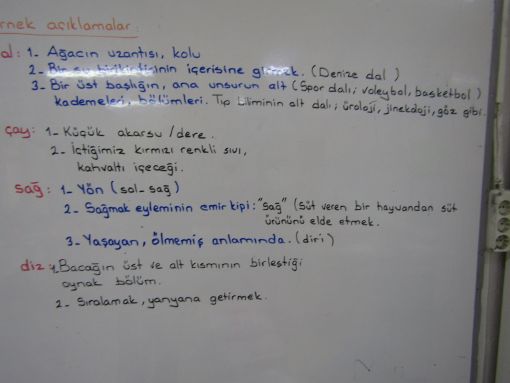 rnek açıklamalar
al: 1- Ağacın uzantısı, kolu
2- Bir su birikintisinin içerisine girmek. (Denize dal)
3- Bir üst başlığın, ana unsurun alt (Spor dalı; voleybol, basketbol)
kademeleri, bölümleri. Tıp biliminin alt dalı; üroloji, jinekoloji, göz gibi.
çay: 1- Küçük akarsu / dere.
2- İçtiğimiz kırmızı renkli sıvı,
kahvaltı içeceği.
sağ: 1- Yön (sol-sağ)
2- Sağmak eyleminin emir kipi: "sağ" (Süt veren bir hayvandan süt
ürününü elde etmek.
3- Yaşayan, ölmemiş anlamında. (diri)
diz: 1- Bacağın üst ve alt kısmının birleştiği
oynak bölüm.
2- Sıralamak, yanyana getirmek.